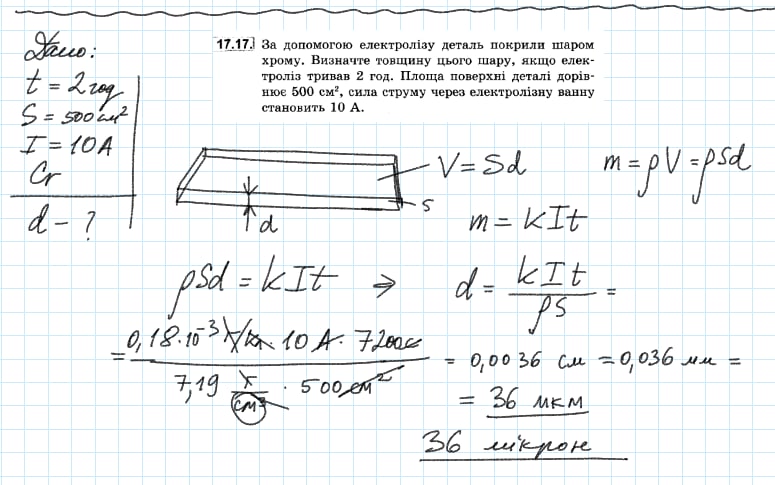 Дано:
t = 2 год
S = 500 см²
I = 10 А
Cr
d – ?
17.17. За допомогою електролізу деталь покрили шаром
хрому. Визначте товщину цього шару, якщо елек-
троліз тривав 2 год. Площа поверхні деталі дорів-
нює 500 см², сила струму через електролізну ванну
становить 10 А.
V = Sd
m = ρV = ρSd
S
d
m = kIt
ρSd = kIt ⇒ d = kIt / ρS =
= 0,18·10⁻³ г/Кл · 10 А · 7200с / 7,19 г/см³ · 500 см² = 0,0036 см = 0,036 мм =
= 36 мкм
36 мікрон